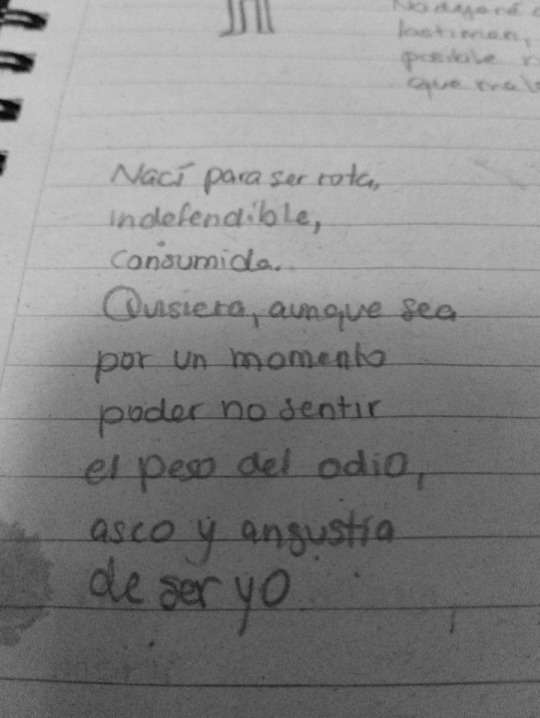 No dejaré
lastimen,
posible
que
Nací para ser rota,
indefendible,
consumida.
Quisiera, aunque sea
por un momento
poder no sentir
el peso del odio,
asco y angustia
de ser yo